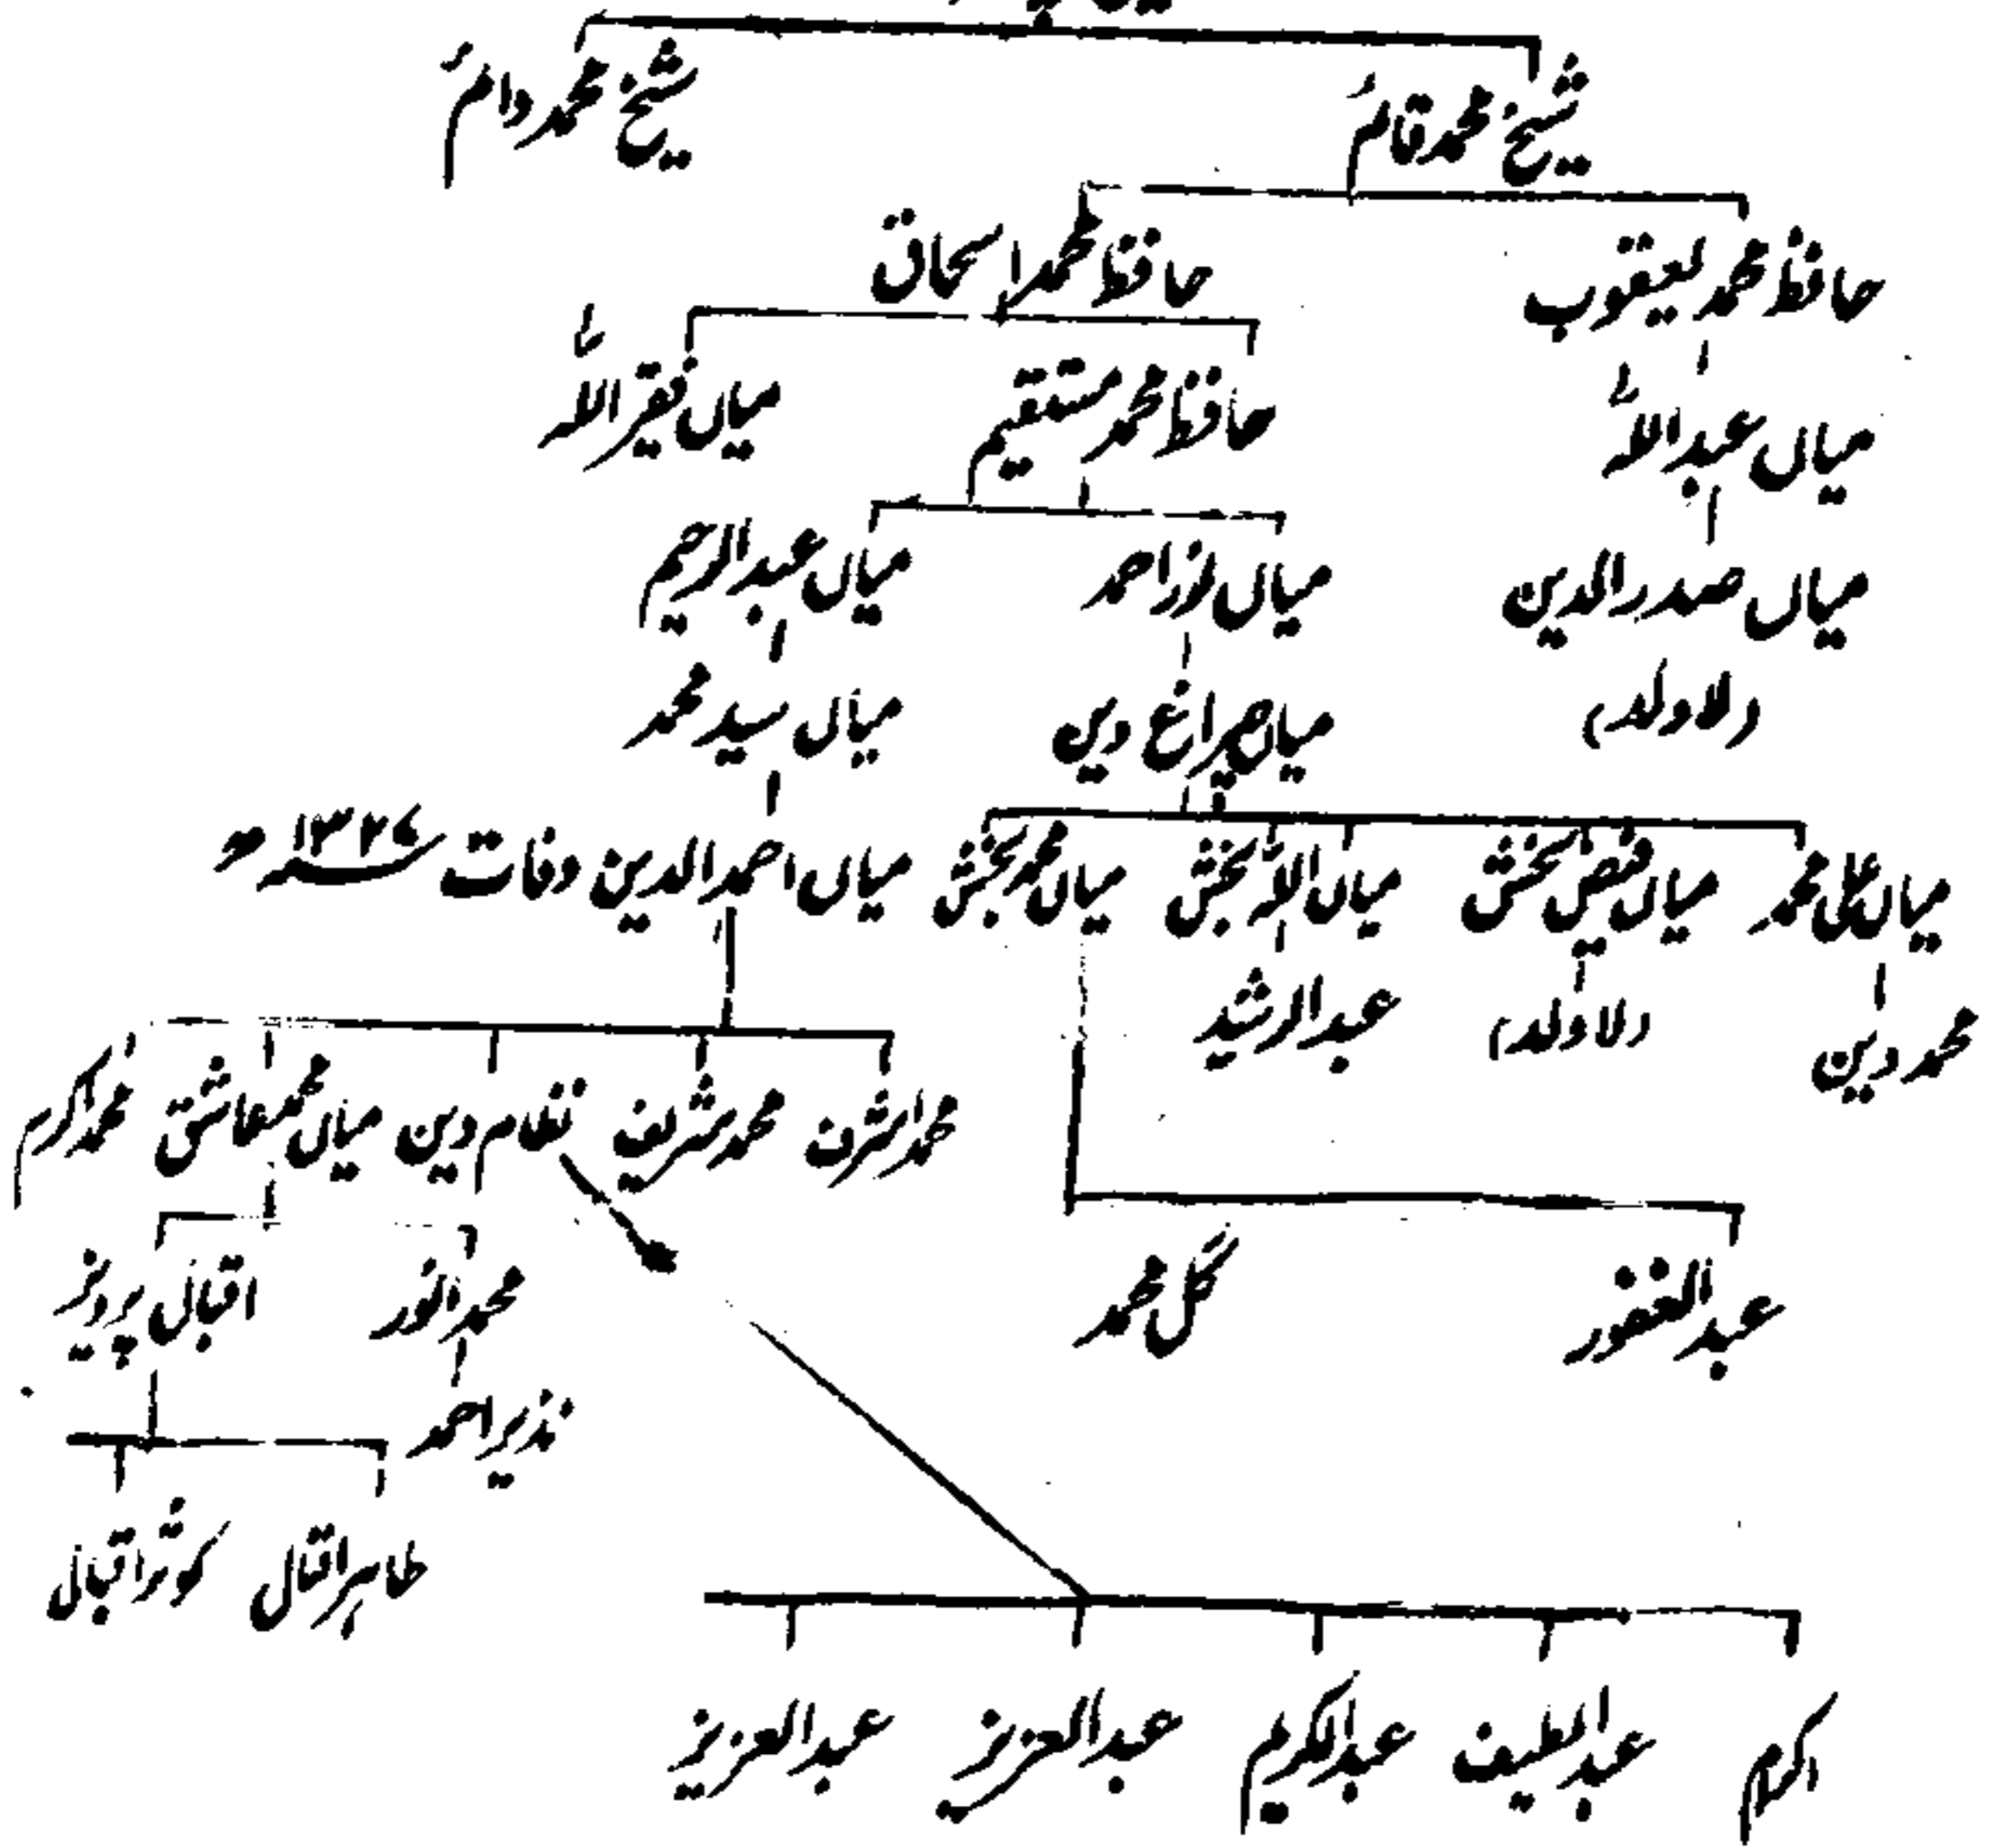 شیخ محمد قائمؒ شیخ محمد دائمؒ
حافظ محمد یعقوب حافظ محمد اسحاق
میاں عبداللہؒ حافظ محمد مستقیم میاں فقیر اللہؒ
میاں صدر الدین میاں نور احمد میاں عبدالرحیم
(لاولد) میاں چراغ دین میاں سید محمد
میاں علی محمد میاں فیض بخش میاں اللہ بخش میاں محمد بخش میاں احمد الدین وفات ۱۳۲۷ھ
محمد دین (لاولد) عبدالرشید
محمد اشرف محمد شریف غلام دین میاں محمد عاشق محمد اکرم
عبدالغفور گل محمد محمد انور اقبال پرویز
نذیر احمد
طاہر اقبال کوثر اقبال
اکرم عبدالطیف عبدالکریم عبدالعزیز عبدالعزیز